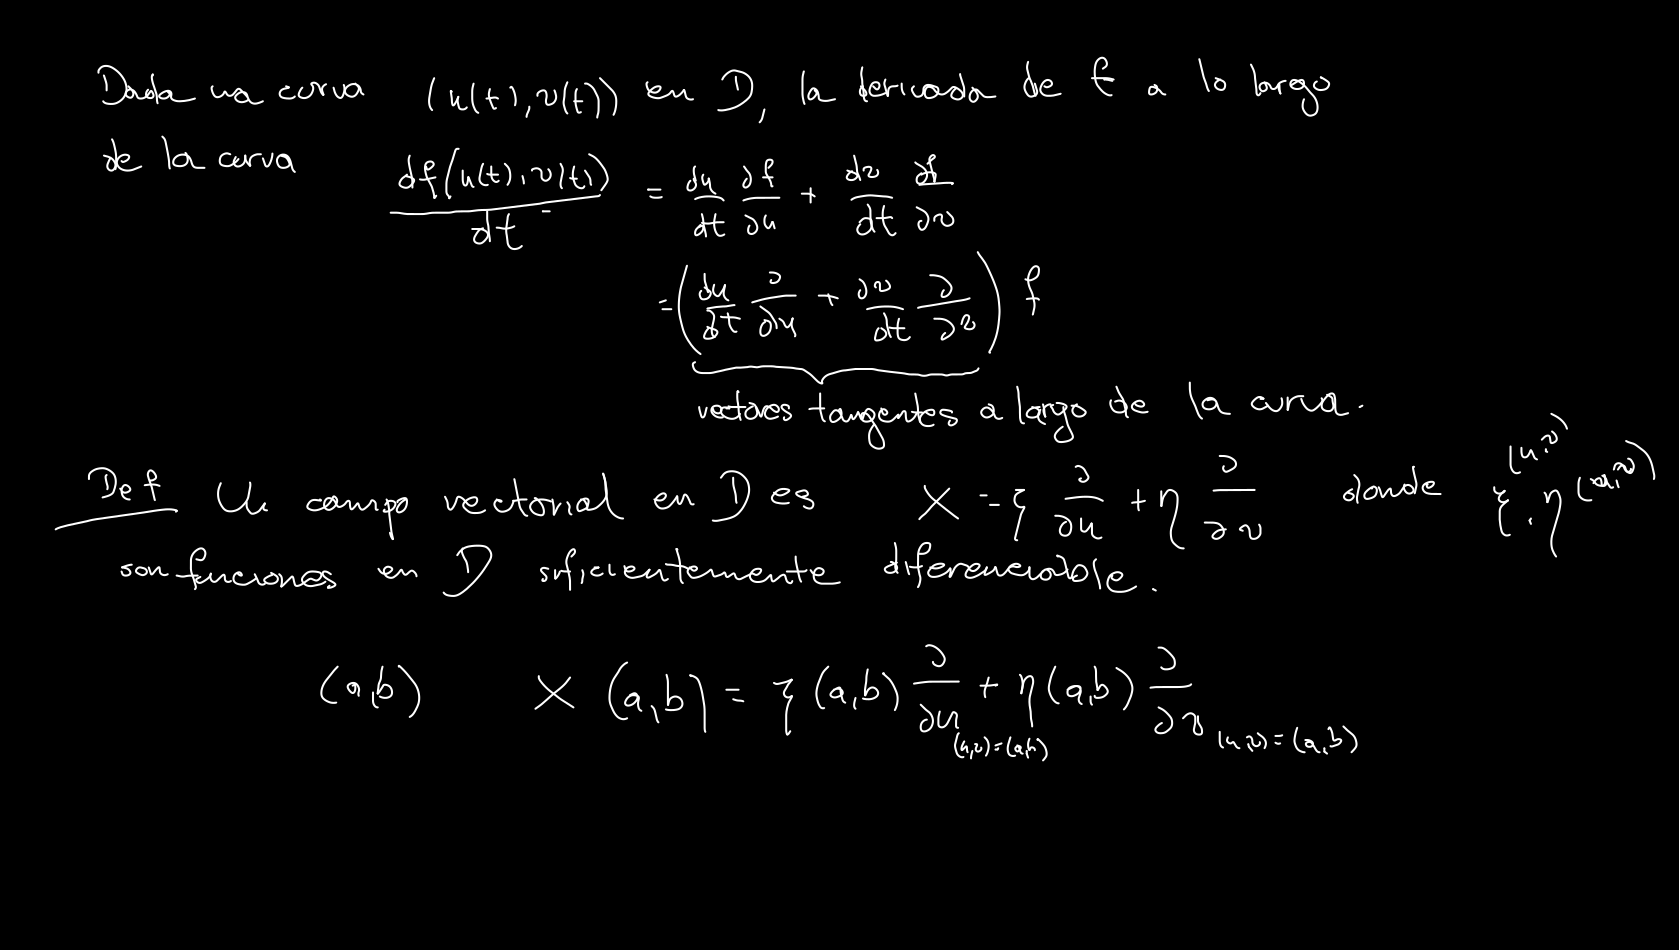 Dada una curva (u(t), v(t)) en D, la derivada de f a lo largo
de la curva df(u(t), v(t))/dt = du/dt ∂f/∂u + dv/dt ∂f/∂v
= (du/dt ∂/∂u + ∂v/dt ∂/∂v) f
vectores tangentes a largo de la curva.
Def Un campo vectorial en D es X = ξ ∂/∂u + η ∂/∂v donde ξ(u,v), η(u,v)
son funciones en D suficientemente diferenciable.
(a,b) X(a,b) = ξ(a,b) ∂/∂u (u,v)=(a,b) + η(a,b) ∂/∂v (u,v)=(a,b)